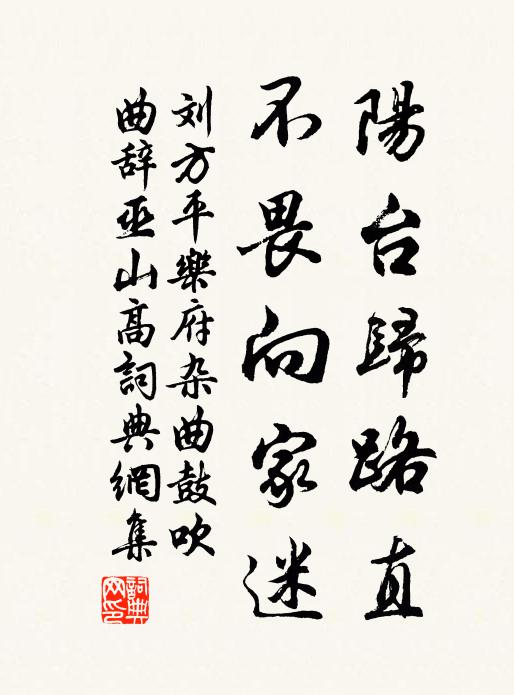 陽台歸路直
不畏向家迷
刘方平樂府杂曲鼓吹
曲辞巫山高詞典網集
詞典网印